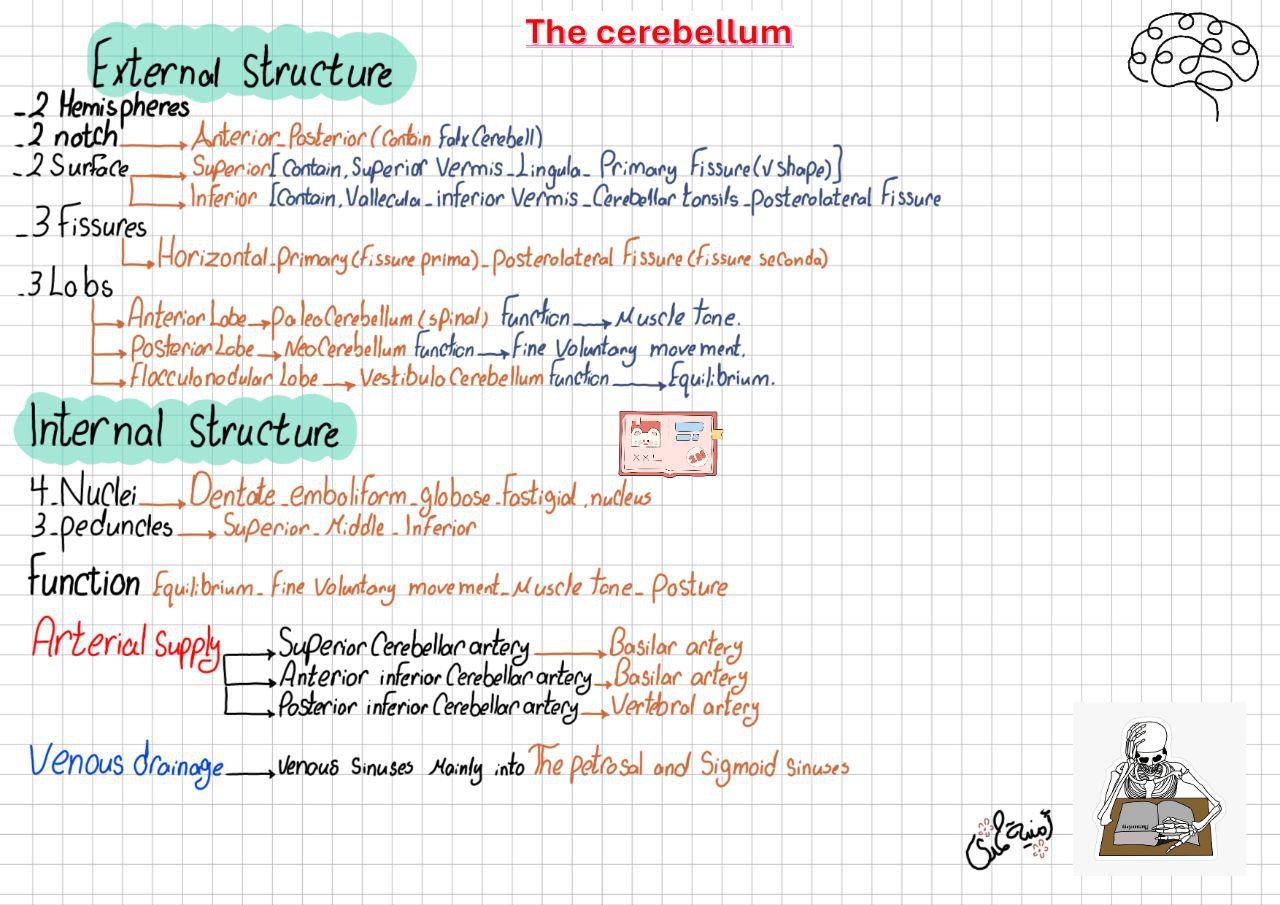 The cerebellum
External Structure
-2 Hemispheres
-2 notch → Anterior-Posterior (Contain Falx Cerebell)
-2 Surface → Superior [Contain, Superior Vermis-Lingula- Primary Fissure (V shape)]
→ Inferior [Contain, Vallecula-inferior Vermis-Cerebellar tonsils-Posterolateral Fissure
-3 Fissures
→ Horizontal-Primary (fissure prima)-Posterolateral Fissure (fissure seconda)
-3 Lobs
→ Anterior Lobe → PaleoCerebellum (spinal) Function → Muscle tone.
→ Posterior Lobe → NeoCerebellum Function → Fine Voluntary movement.
→ Flocculonodular Lobe → VestibuloCerebellum Function → Equilibrium.
Internal Structure
4-Nuclei → Dentate-emboliform-globose-Fastigial, nucleus
3-peduncles → Superior-Middle-Inferior
Function Equilibrium-Fine Voluntary movement-Muscle tone-Posture
Arterial Supply → Superior Cerebellar artery → Basilar artery
→ Anterior inferior Cerebellar artery → Basilar artery
→ Posterior inferior Cerebellar artery → Vertebral artery
Venous drainage → Venous Sinuses Mainly into The petrosal and Sigmoid sinuses